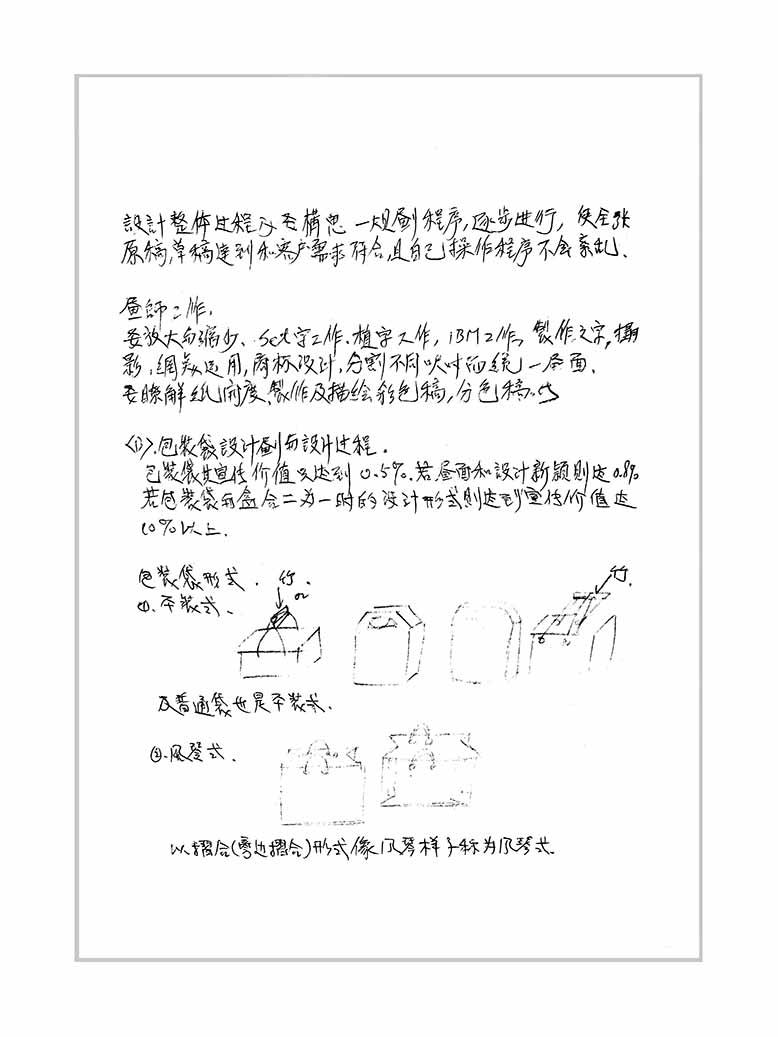 設計整体过程及否構思一规劃程序,逐步进行,使全张
原稿,草稿達到和客户需求符合,且自己操作程序不会紊乱、
畫師工作.
要放大和缩少、Set字工作.植字工作, iBM工作, 製作文字,攝
影,網点运用,商标设计,分割不同呎吋而統一层面.
要瞭解纸张開度、製作及描绘彩色稿,分色稿
<1>.包装袋設计劃与設计过程.
包装袋其宣传价值只达到0.5%.若畫面和設计新颖則达0.8%
若包装袋和盒合二为一时的设计形式則达到宣传价值达
10%以上.
包装袋形式. 竹. 竹.
①.平装式、
及普通袋也是平装式.
②.风琴式.
以摺合(兩边摺合)形式像风琴样子称为风琴式.